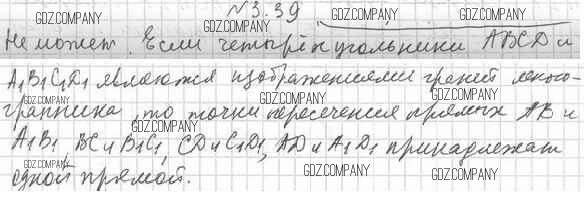 № 3.39
GDZ.COMPANY GDZ.COMPANY GDZ.COMPANY GDZ.COMPANY
Не может. Если четырёхугольники ABCD и
A₁B₁C₁D₁ являются изображениями граней много-
GDZ.COMPANY GDZ.COMPANY
гранника, то точки пересечения прямых AB и
GDZ.COMPANY GDZ.COMPANY GDZ.COMPANY
A₁B₁, BC и B₁C₁, CD и C₁D₁, AD и A₁D₁ принадлежат
GDZ.COMPANY GDZ.COMPANY GDZ.COMPANY
одной прямой.